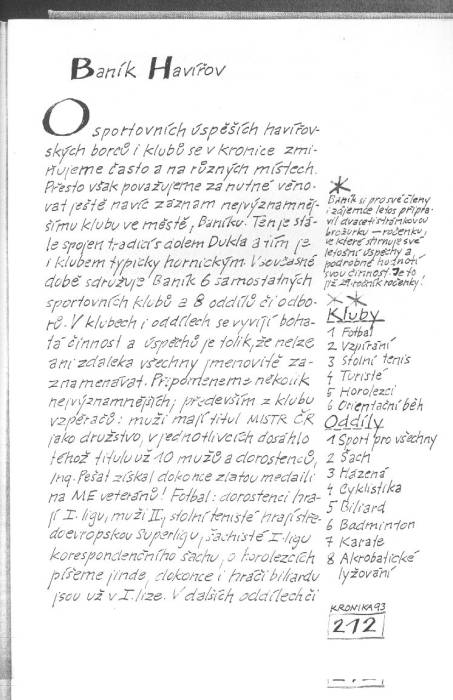 Baník Havířov
O sportovních úspěších havířov-
ských borců i klubů se v kronice zmi-
ňujeme často a na různých místech.
Přesto však považujeme za nutné věno-
vat ještě navíc záznam nejvýznamněj-
šímu klubu ve městě, Baníku. Ten je stá-
le spojen tradicí s dolem Dukla a tím je
i klubem typicky hornickým. V současné
době sdružuje Baník 6 samostatných
sportovních klubů a 8 oddílů či odbo-
rů. V klubech i oddílech se vyvíjí boha-
tá činnost a úspěchů je tolik, že nelze
ani zdaleka všechny jmenovitě za-
znamenávat. Připomeneme několik
nejvýznamnějších, především z klubu
vzpěračů: muži mají titul MISTR ČR
jako družstvo, v jednotlivcích dosáhlo
téhož titulu už 10 mužů a dorostenců,
Ing. Pešat získal dokonce zlatou medaili
na ME veteránů! Fotbal: dorostenci hra-
jí I. ligu, muži II., stolní tenisté hrají stře-
doevropskou superligu, šachisté I. ligu
korespondenčního šachu, o horolezcích
píšeme jinde, dokonce i hráči biliardu
jsou už v I. lize. V dalších oddílech či
*
BANÍK si pro své členy
i zájemce letos připra-
vil dvacetistránkovou
brožurku – ročenku,
ve které shrnuje své
letošní úspěchy a
podrobně hodnotí
svou činnost. Je to
již 29. ročník ročenky!
* *
Kluby
1 Fotbal
2 Vzpírání
3 Stolní tenis
4 Turisté
5 Horolezci
6 Orientační běh
Oddíly
1 Sport pro všechny
2 Šach
3 Házená
4 Cyklistika
5 Biliard
6 Badminton
7 Karate
8 Akrobatické
lyžování
KRONIKA 93
212